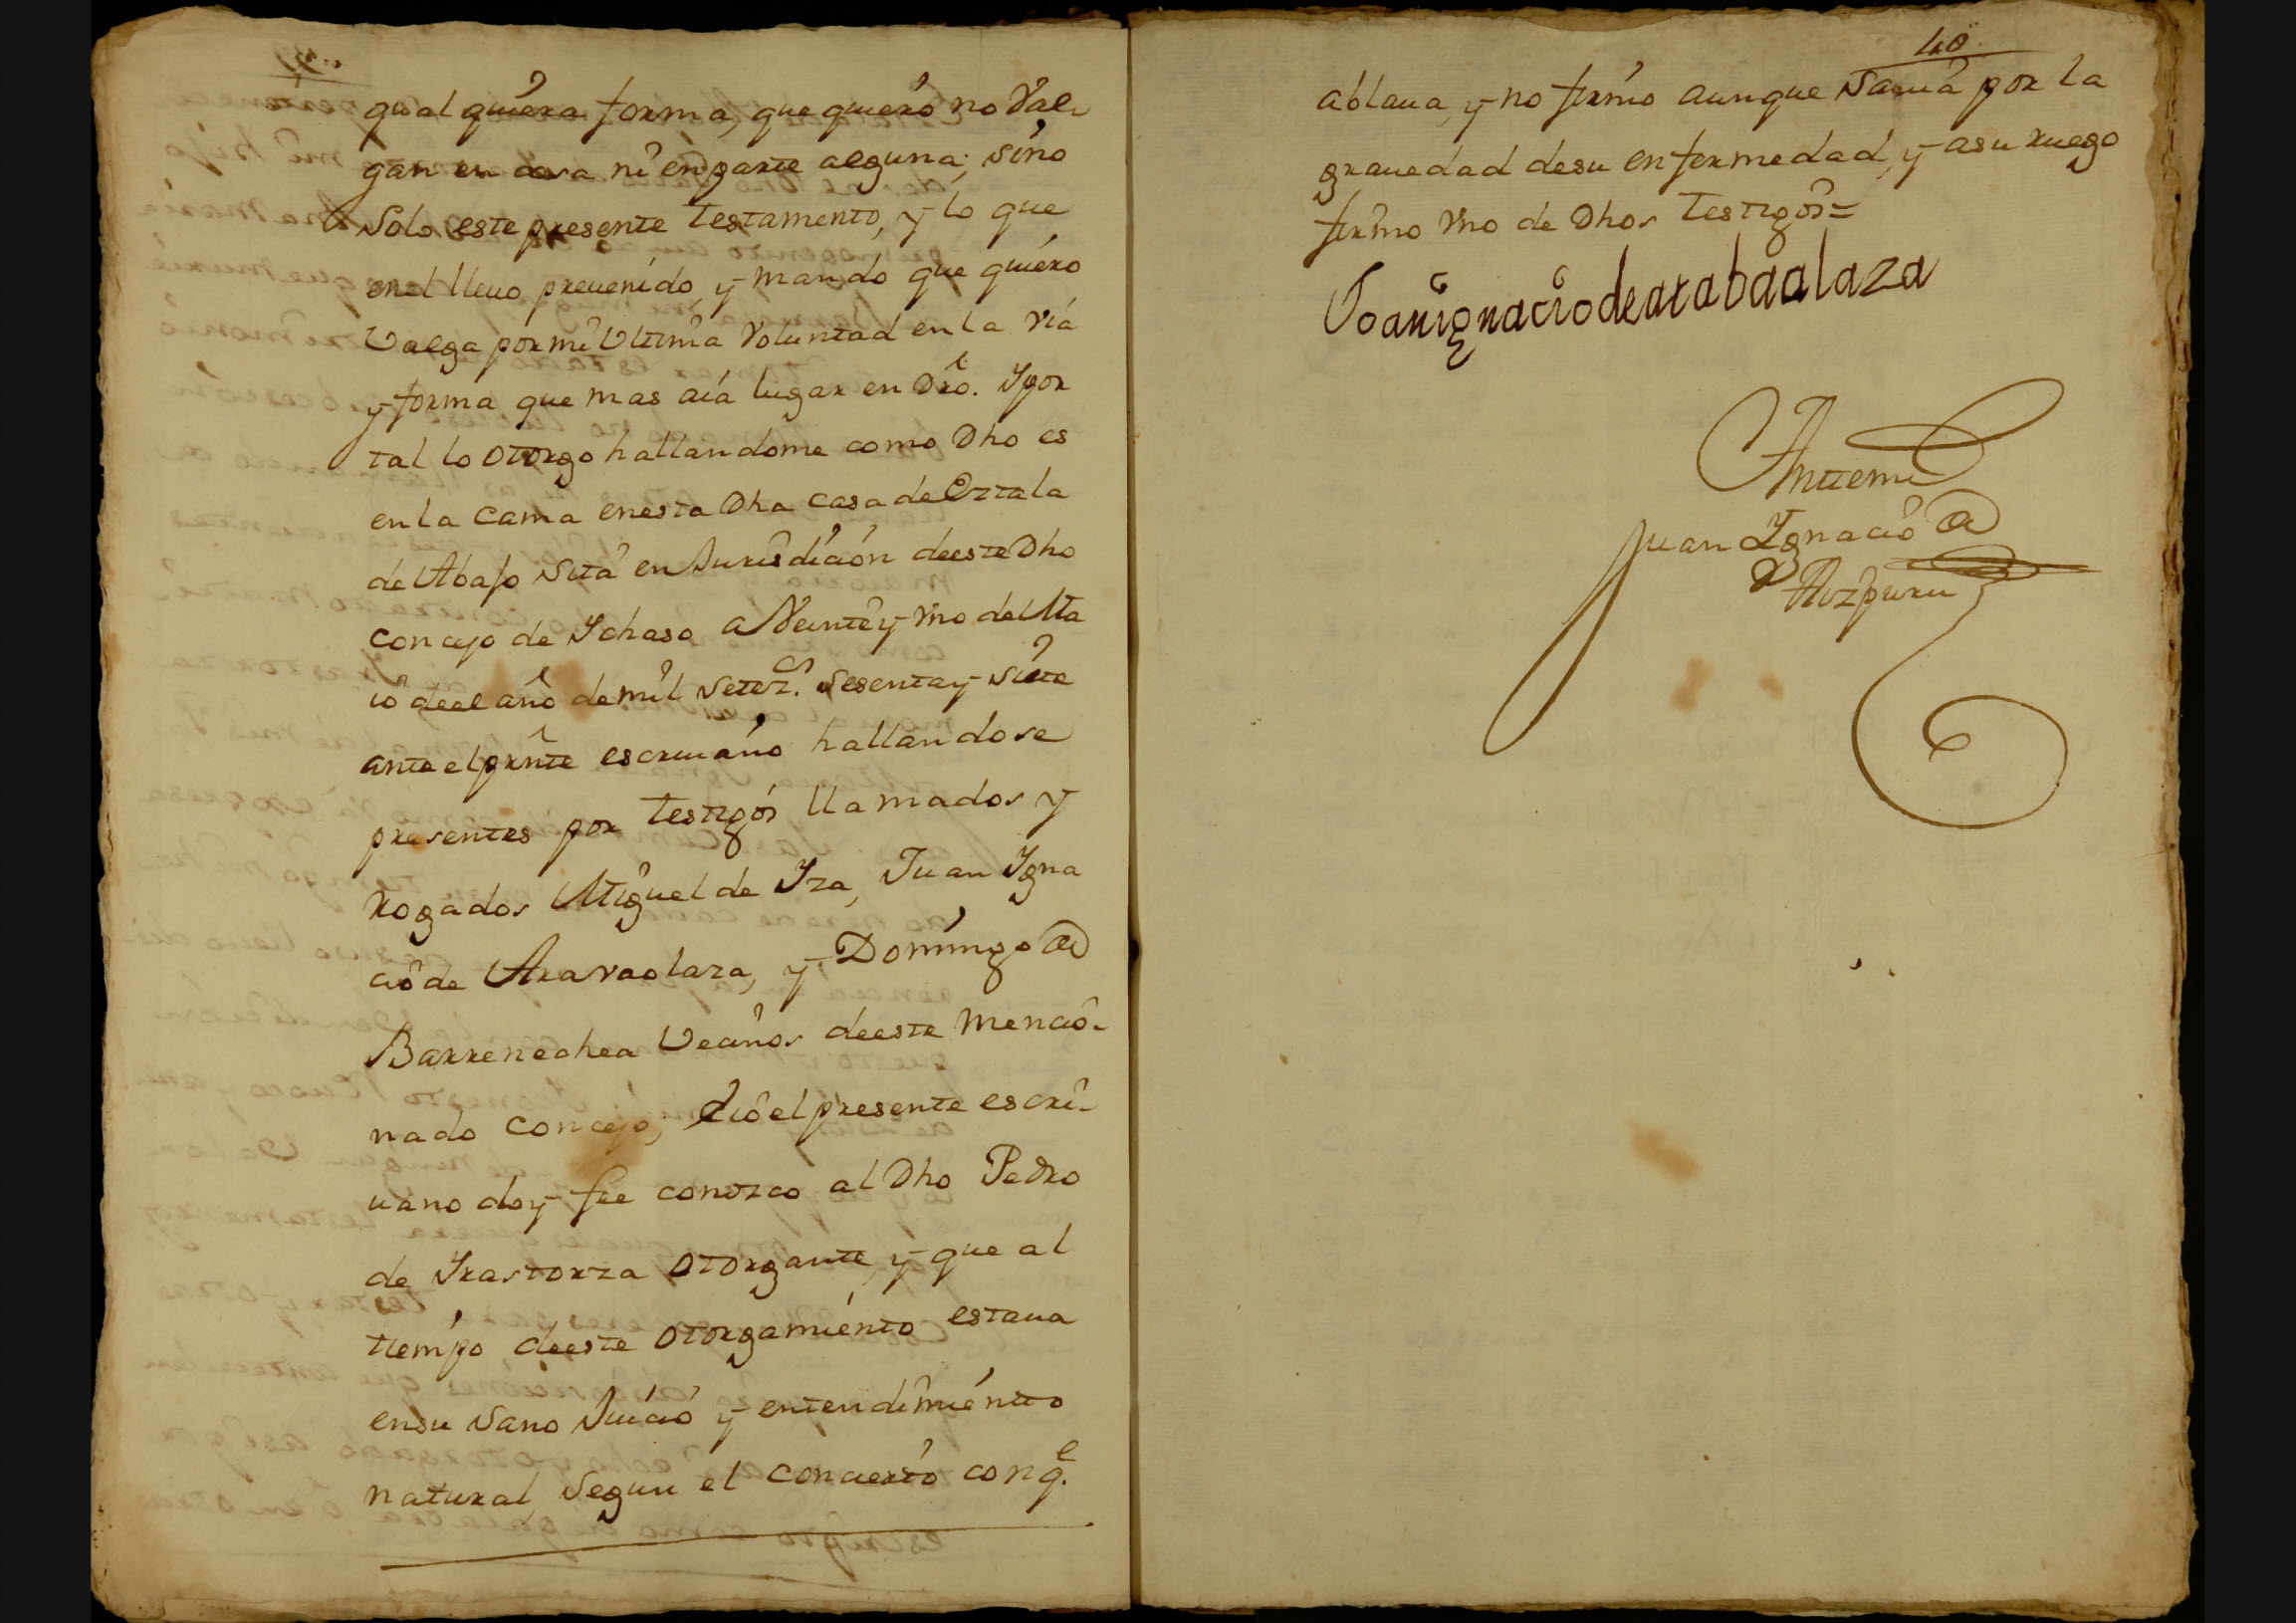 qualquiera forma, que quiero no Val-
gan en cosa ni en parte alguna; sino
Solo este presente testamento, y lo que
en el lleuo preuenido, y mando que quiero
Valga por mi Vltima Voluntad en la via
y forma que mas aia lugar en Dro. Ypor
tal lo otorgo hallandome como Dho es
en la Cama en esta Dha Casa de
de Abajo Sita en Jurisdicion de este Dho
concejo de Ichaso a Veinte y Vno de Ma
io de el año de mil Setez.s sesenta y siete
ante el prnte escriuano hallandose
presentes por testigos llamados y
Rogados Miguel de Iza, Juan Igna
cio de Aravaolaza, y Domingo de
Barrenechea Vecinos de este mencio-
nado Concejo; e io el presente escri-
uano doy fee conozco al Dho Pedro
de Irastorza otorgante, y que al
tiempo de este otorgamiento estaua
en su Sano Juicio y entendimiento
natural Segun el concierto con q.e
40
ablaua, y no firmo aunque Sauia por la
grauedad de su enfermedad, y a su ruego
firmo Vno de Dhos testigos=
Joan ignacio de arabaalaza
Ante mi
Juan Ignacio de
Aozpuru